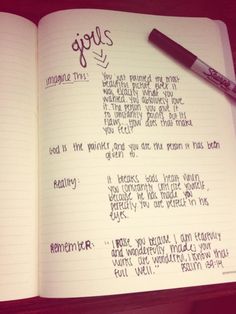 girls
Imagine This:
You just painted the most
beautiful picture ever. It
was exactly what you
wanted. You absolutely love
it. The person you give it
to constantly points out its
flaws. How does that make
you feel?
God is the painter, and you are the person it has been
given to.
Reality:
It breaks God's heart when
you constantly criticize yourself,
because he has made you
perfectly. You are perfect in his
eyes.
Remember:
"I praise you because I am fearfully
and wonderfully made; your
works are wonderful, I know that
full well."
Psalm 139:14
Sharpie